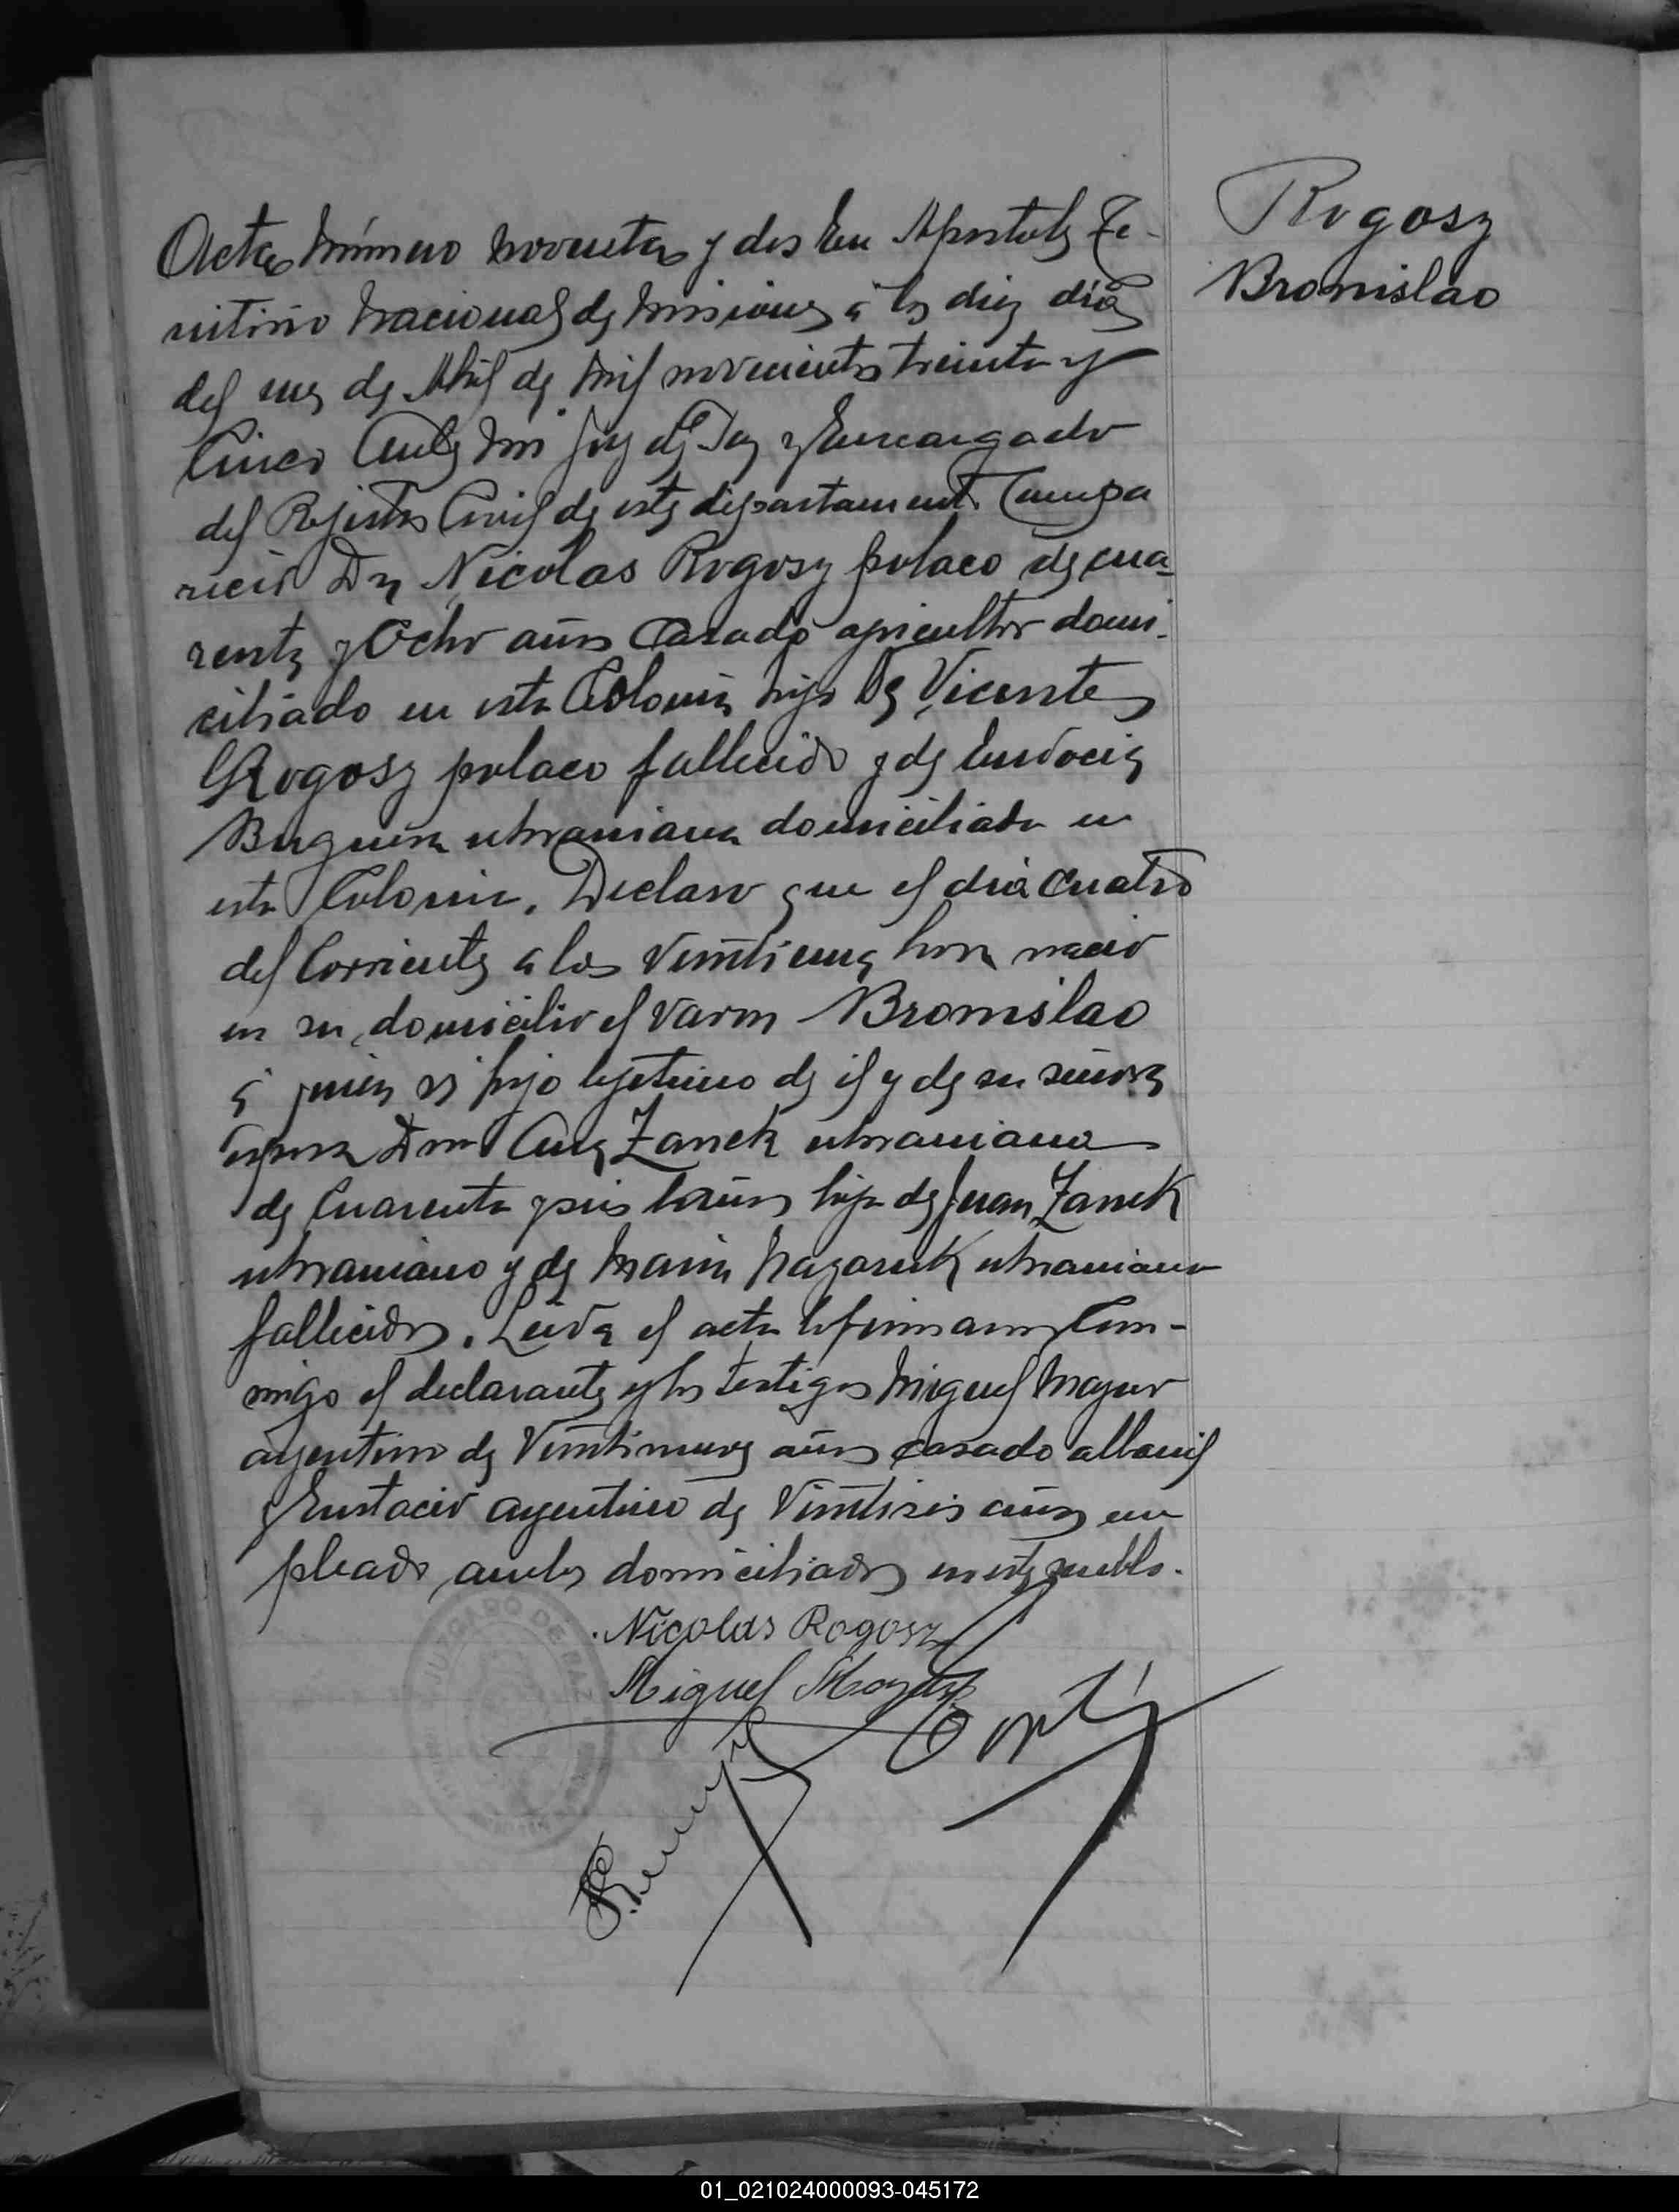 Rogosz
Bronislao
Acta número noventa y dos En Apostoles Te-
rritorio Nacional de Misiones á los diez dias
del mes de Abril de mil novecientos treinta y
Cinco Ante mi Juez de Paz y Encargado
del Rejistro Civil de este departamento Compa
reció Dn Nicolas Rogosz polaco de cua-
renta y Ocho años Casado agricultor domi-
ciliado en esta Colonia hijo de Vicente
Rogosz polaco fallecido y de Eudocia
ukraniana domiciliada en
esta Colonia. Declaro que el dia cuatro
del Corriente a las Veintiuna hora nació
en su domicilio el varon Bronislao
á quien es hijo lejitimo de el y de su señora
esposa Dña Ana Zanek ukraniana
de Cuarenta y seis años hija de Juan Zanek
ukraniano y de Maria Nazaruk ukraniana
fallecidos. Leida el acta la firmaron Con-
migo el declarante y los testigos Miguel Mayer
argentino de Veintinueve años casado albañil
y Eustacio argentino de Veintiseis años em
pleado ambos domiciliados en este pueblo.
Nicolas Rogosz
Miguel
JUZGADO DE PAZ
01_021024000093-045172